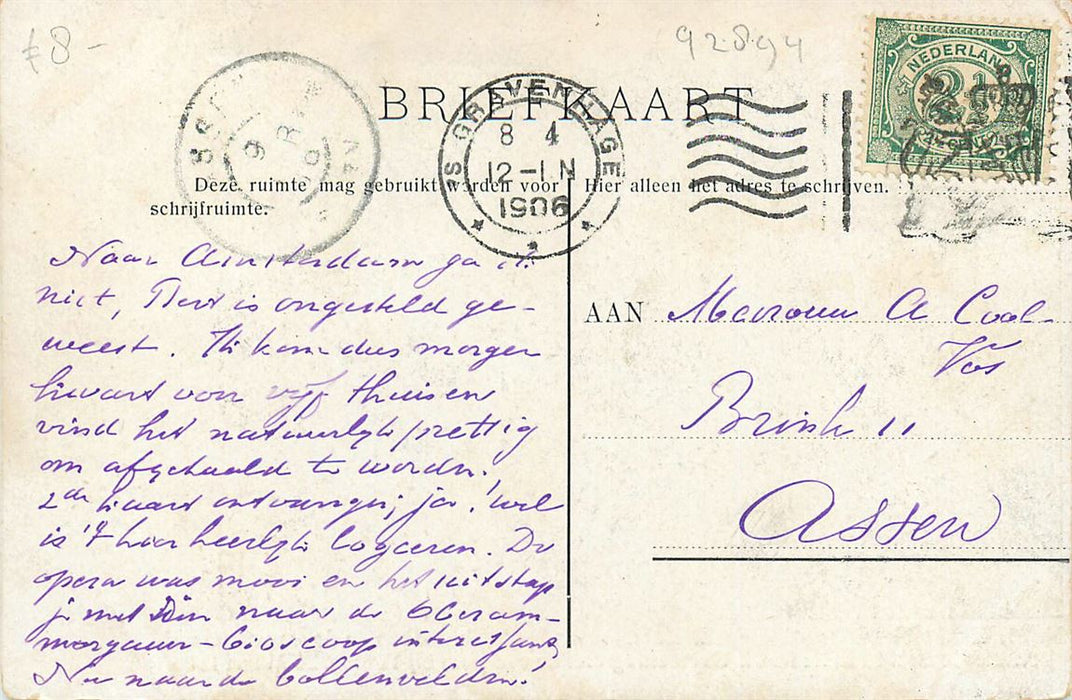 £8-
92894
BRIEFKAART
'S GRAVENHAGE
8 4
12-1 N
1906
NEDERLAND
2½
Deze ruimte mag gebruikt worden voor
schrijfruimte.
Hier alleen het adres te schrijven.
Naar Amsterdam ga ik
niet, is ongesteld ge-
weest. Ik kom dus morgen
kwart voor vijf thuis en
vind het natuurlijk prettig
om afgehaald te worden.
2de kaart ontvangen; ja! wel
is 't hier heerlijk logeeren. De
opera was mooi en het uitstap
je met naar de Oberam-
mergauer-bioscoop interessant
Nu naar de bollenvelden!
AAN Mevrouw A Cool-
Vos
Brink 11
Assen